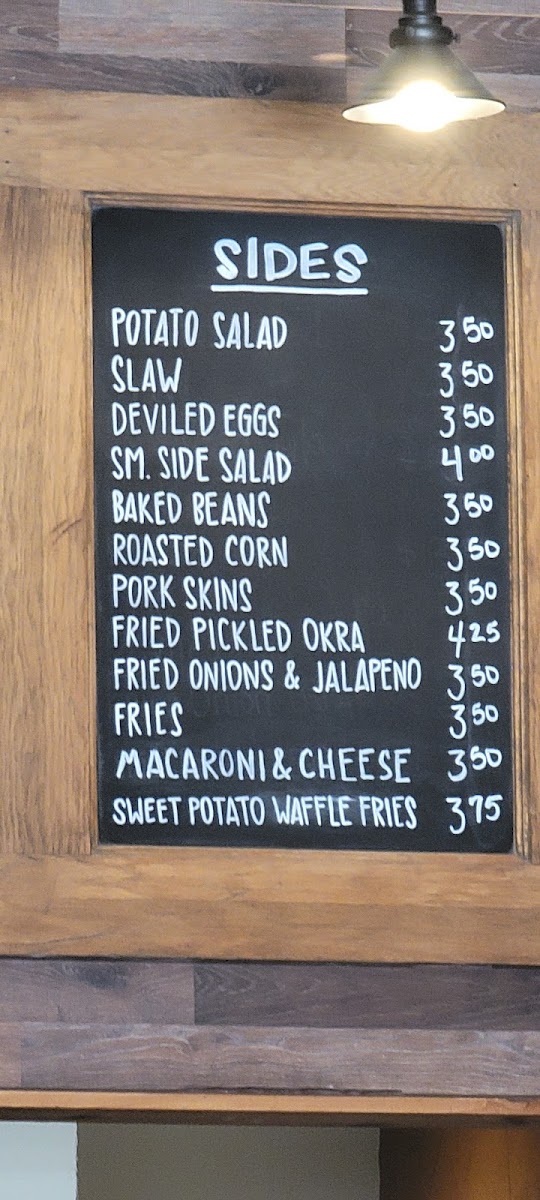 SIDES
POTATO SALAD 3 50
SLAW 3 50
DEVILED EGGS 3 50
SM. SIDE SALAD 4 00
BAKED BEANS 3 50
ROASTED CORN 3 50
PORK SKINS 3 50
FRIED PICKLED OKRA 4 25
FRIED ONIONS & JALAPENO 3 50
FRIES 3 50
MACARONI & CHEESE 3 50
SWEET POTATO WAFFLE FRIES 3 75